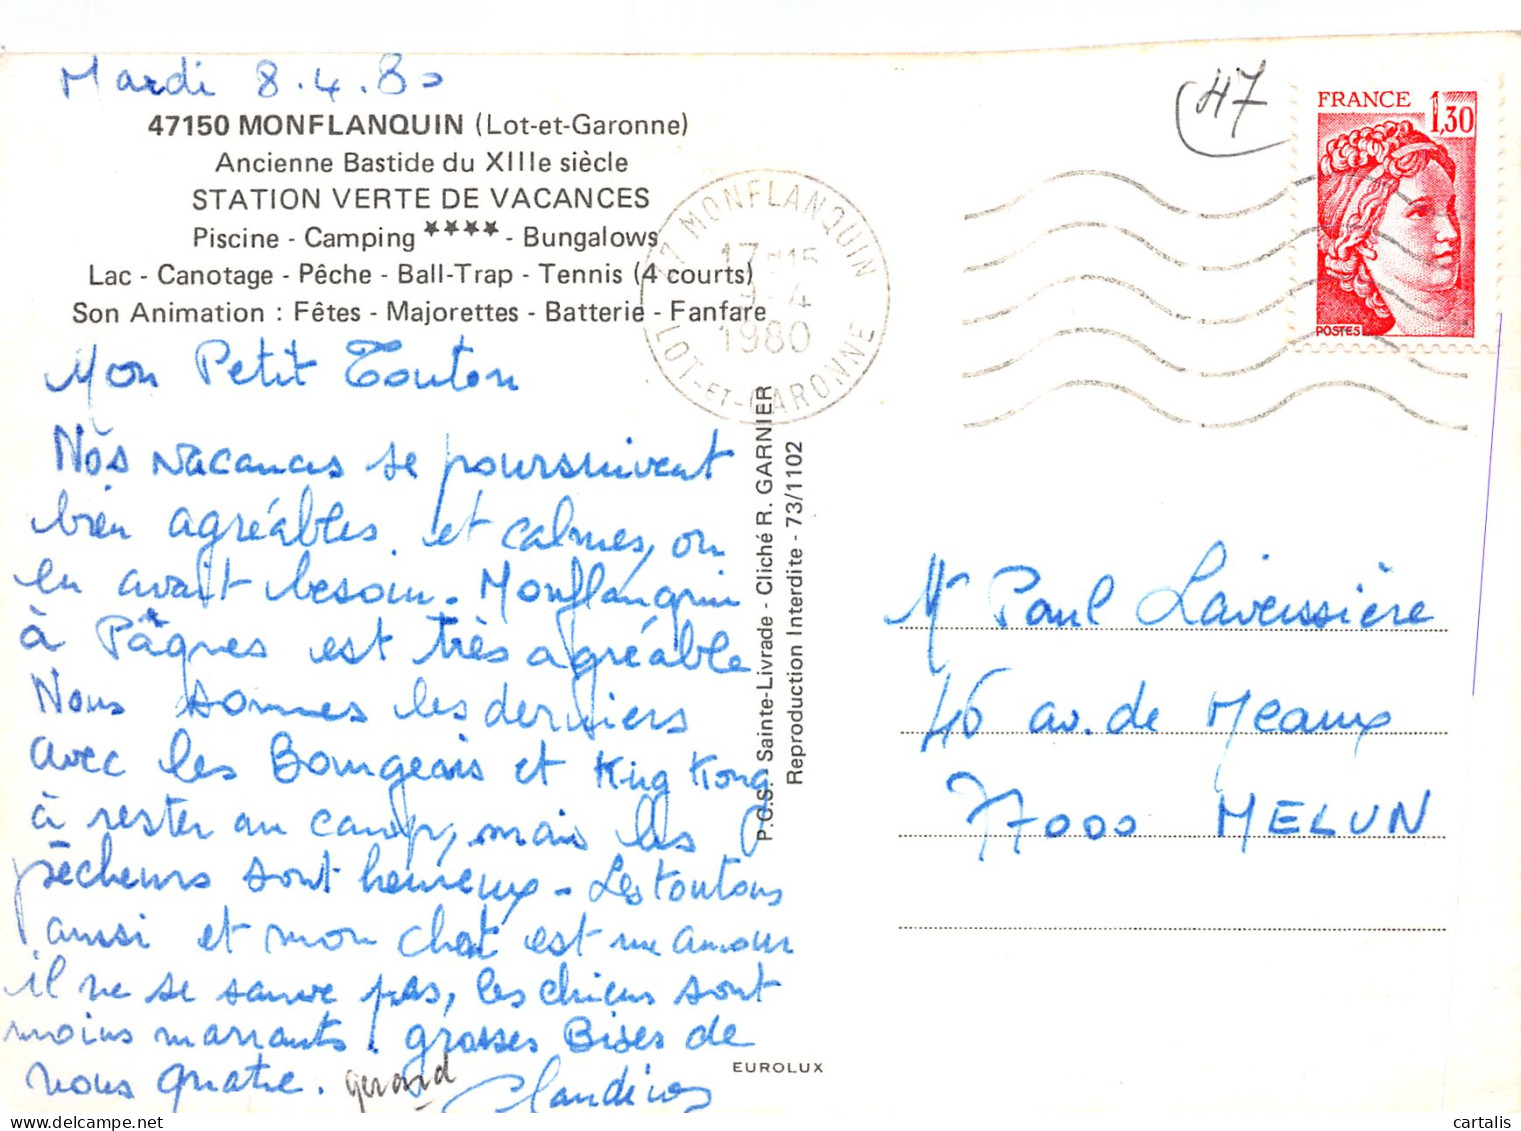 Mardi 8.4.80
47150 MONFLANQUIN (Lot-et-Garonne)
Ancienne Bastide du XIIIe siècle
STATION VERTE DE VACANCES
Piscine - Camping **** - Bungalows
Lac - Canotage - Pêche - Ball-Trap - Tennis (4 courts)
Son Animation : Fêtes - Majorettes - Batterie - Fanfare
Mon Petit Touton
Nos vacances se poursuivent
bien agréables et calmes, on
en avait besoin. Monflanquin
à Pâques est très agréable
Nous sommes les derniers
avec les Bourgeais et King Kong
à rester au camp, mais les
pêcheurs sont heureux - Les toutous
aussi et mon chat est un amour
il ne se sauve pas, les chiens sont
moins marrants. grosses Bises de
nous quatre. gerard
EUROLUX
P.C.S. Sainte-Livrade - Cliché R. GARNIER
Reproduction Interdite - 73/1102
47 MONFLANQUIN
17H15
9-4
1980
LOT-ET-GARONNE
47
FRANCE
1,30
POSTES
Mr Paul Laveissière
46 av. de Meaux
77000 MELUN
cartalis